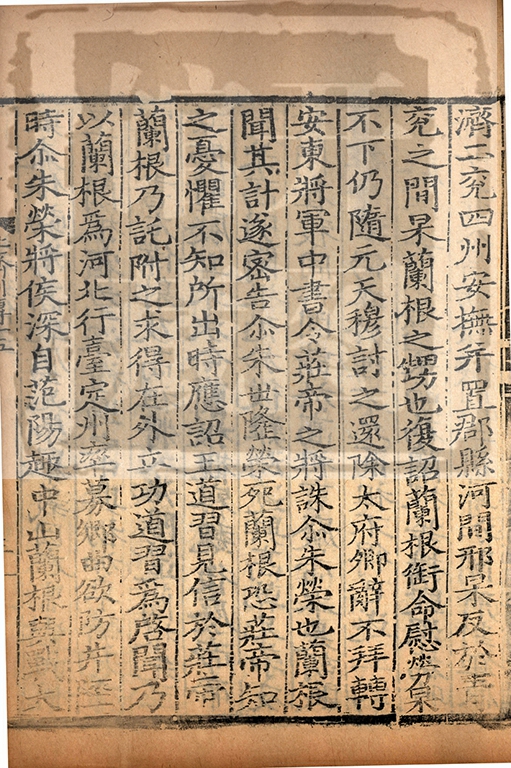 濟二兖四州安撫并置郡縣河間邢杲反於青
兖之間杲蘭根之甥也復詔蘭根銜命慰勞杲
不下仍隨元天穆討之還除太府卿辭不拜轉
安東將軍中書令莊帝之將誅尒朱榮也蘭根
聞其計遂密告尒朱世隆榮死蘭根恐莊帝知
之憂懼不知所出時應詔王道習見信於莊帝
蘭根乃託附之求得在外立功道習爲啓聞乃
以蘭根爲河北行臺定州率募鄉曲欲防井陘
時尒朱榮將侯深自范陽趣中山蘭根與戰大